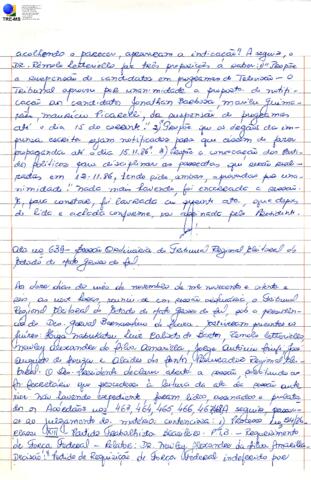 TRE-MS
acolhendo o parecer, aprovaram a indicação". A seguir, o
Dr. Rêmolo Letteriello fez três proposições a saber: 1ª "Propõe
a suspensão de candidatos em programas de Televisão - O
Tribunal aprovou por unanimidade a proposta de notifi-
cação ao candidato Jonathan Barbosa, Marilu Guima-
rães, Maurício Picarelli, da suspensão de programas
até o dia 15 do corrente". 2) "Propõe que os órgãos da im-
prensa escrita sejam notificados para que deixem de fazer
propaganda até o dia 15.11.86". 3) "Propõe a convocação dos Parti-
dos políticos para disciplinar as passeatas que serão reali-
zadas em 12-11-86, tendo sido, ambas, aprovadas por una-
nimidade". Nada mais havendo, foi encerrada a sessão.
E, para constar, foi lavrada a presente ata, que depois
de lida e achada conforme, vai assinada pelo Presidente.
Ata nº 639 - Sessão Ordinária do Tribunal Regional Eleitoral do
Estado de Mato Grosso do Sul.
Ao onze dias do mês de novembro de mil novecentos e oitenta e
seis, às horas, reuniu-se em sessão ordinária, o Tribunal
Regional Eleitoral do Estado de Mato Grosso do Sul, sob a presidên-
cia do Des. Estiveram presentes os
juízes Higa Nabukatsu, Luiz Carlos Rêmolo Letteriello,
Marley Alexandre da Silva Amarilha, Jorge Antônio
Augusto de Souza e Procurador Regional Elei-
toral. O Des. Presidente declarou aberta a sessão,
foi que procedeu à leitura da ata da sessão ante-
rior. Não havendo expediente, foram lidos, assinados e publica-
dos os Acórdãos nos 463, 464, 465, 466, 467. A seguir, passou-
se ao julgamento da matéria contenciosa: 1) Processo
classe XIII - Partido Trabalhista Brasileiro - PTB - Requerimento
de Força Federal - Relator: Dr. Marley Alexandre da Silva Amarilha.
Decisão: "Pedido de Requisição de Força Federal indeferido por